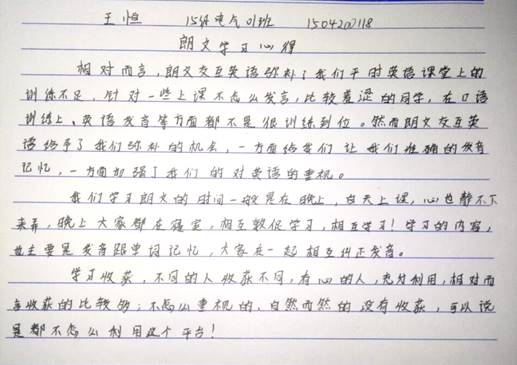 王恒 15级电气01班 1504200118
朗文学习心得
相对而言，朗文交互英语弥补了我们平时英语课堂上的
训练不足，针对一些上课不怎么发言，比较羞涩的同学，在口语
训练上、英语发音等方面都不是很训练到位。然而朗文交互英
语给予了我们弥补的机会，一方面给我们让我们准确的发音
记忆，一方面加强了我们的对英语的重视。
我们学习朗文的时间一般是在晚上，白天上课，心也静不下
来弄，晚上大家都在寝室，相互敦促学习，相互学习！学习的内容，
也主要是发音跟单词记忆，大家在一起相互纠正发音。
学习收获，不同的人收获不同，有心的人，充分利用，相对而
言收获的比较多；不怎么重视的、自然而然的没有收获，可以说
是都不怎么利用这个平台！